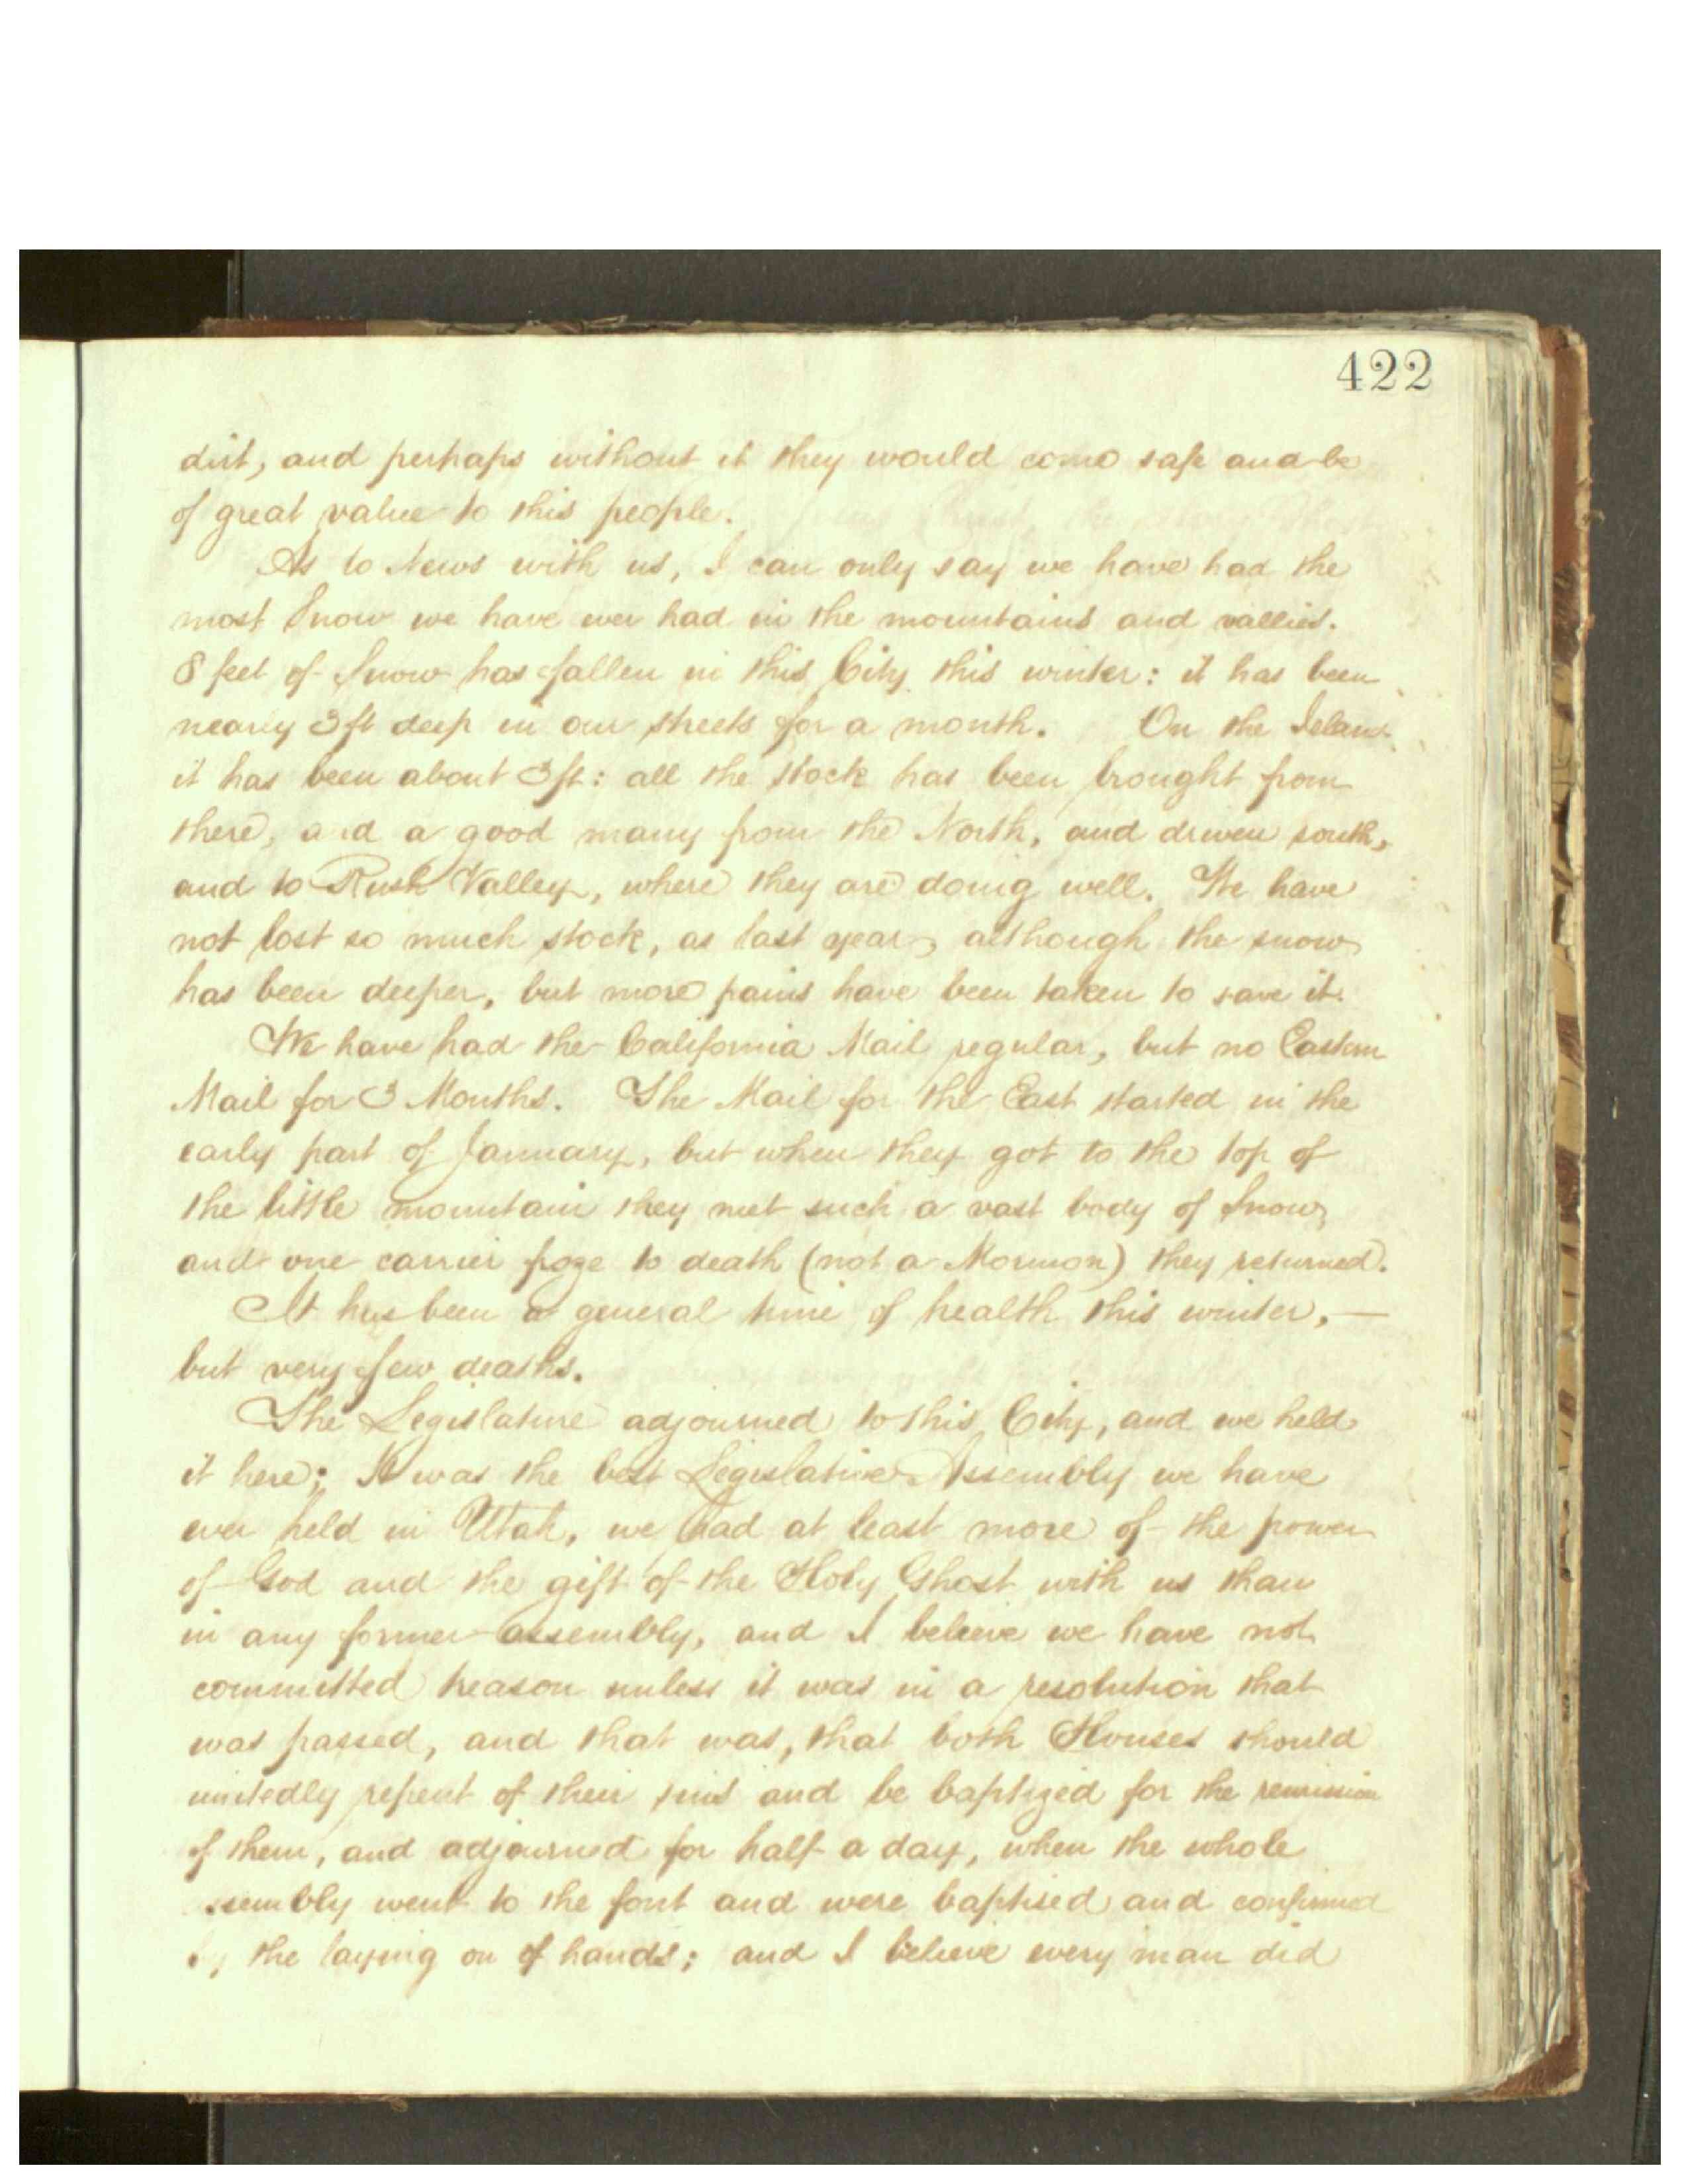 422
dirt, and perhaps without it they would come safe and be
of great value to this people.
As to News with us, I can only say we have had the
most Snow we have ever had in the mountains and vallies.
8 feet of Snow has fallen in this City this winter: it has been
nearly 3 ft deep in our streets for a month. On the Island
it has been about 3 ft: all the stock has been brought from
there, and a good many from the North, and driven south,
and to Rush Valley, where they are doing well. We have
not lost so much stock, as last year, although the snow
has been deeper, but more pains have been taken to save it.
We have had the California Mail regular, but no Eastern
Mail for 3 Months. The Mail for the East started in the
early part of January, but when they got to the top of
the little mountain they met such a vast body of Snow,
and one carrier froze to death (not a Mormon) they returned.
It has been a general time of health this winter, —
but very few deaths.
The Legislature adjourned to this City, and we held
it here; It was the best Legislative Assembly we have
ever held in Utah, we had at least more of the power
of God and the gift of the Holy Ghost with us than
in any former assembly, and I beleeve we have not
committed treason unless it was in a resolution that
was passed, and that was, that both Houses should
unitedly repent of their sins and be baptized for the remission
of them, and adjourned for half a day, when the whole
ssembly went to the font and were baptised and confirmed
by the laying on of hands; and I believe every man did